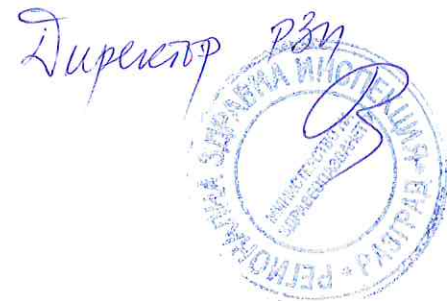 Директор РЗИ
РЕГИОНАЛНА ЗДРАВНА ИНСПЕКЦИЯ * РАЗГРАД *
МИНИСТЕРСТВО НА
ЗДРАВЕОПАЗВАНЕТО